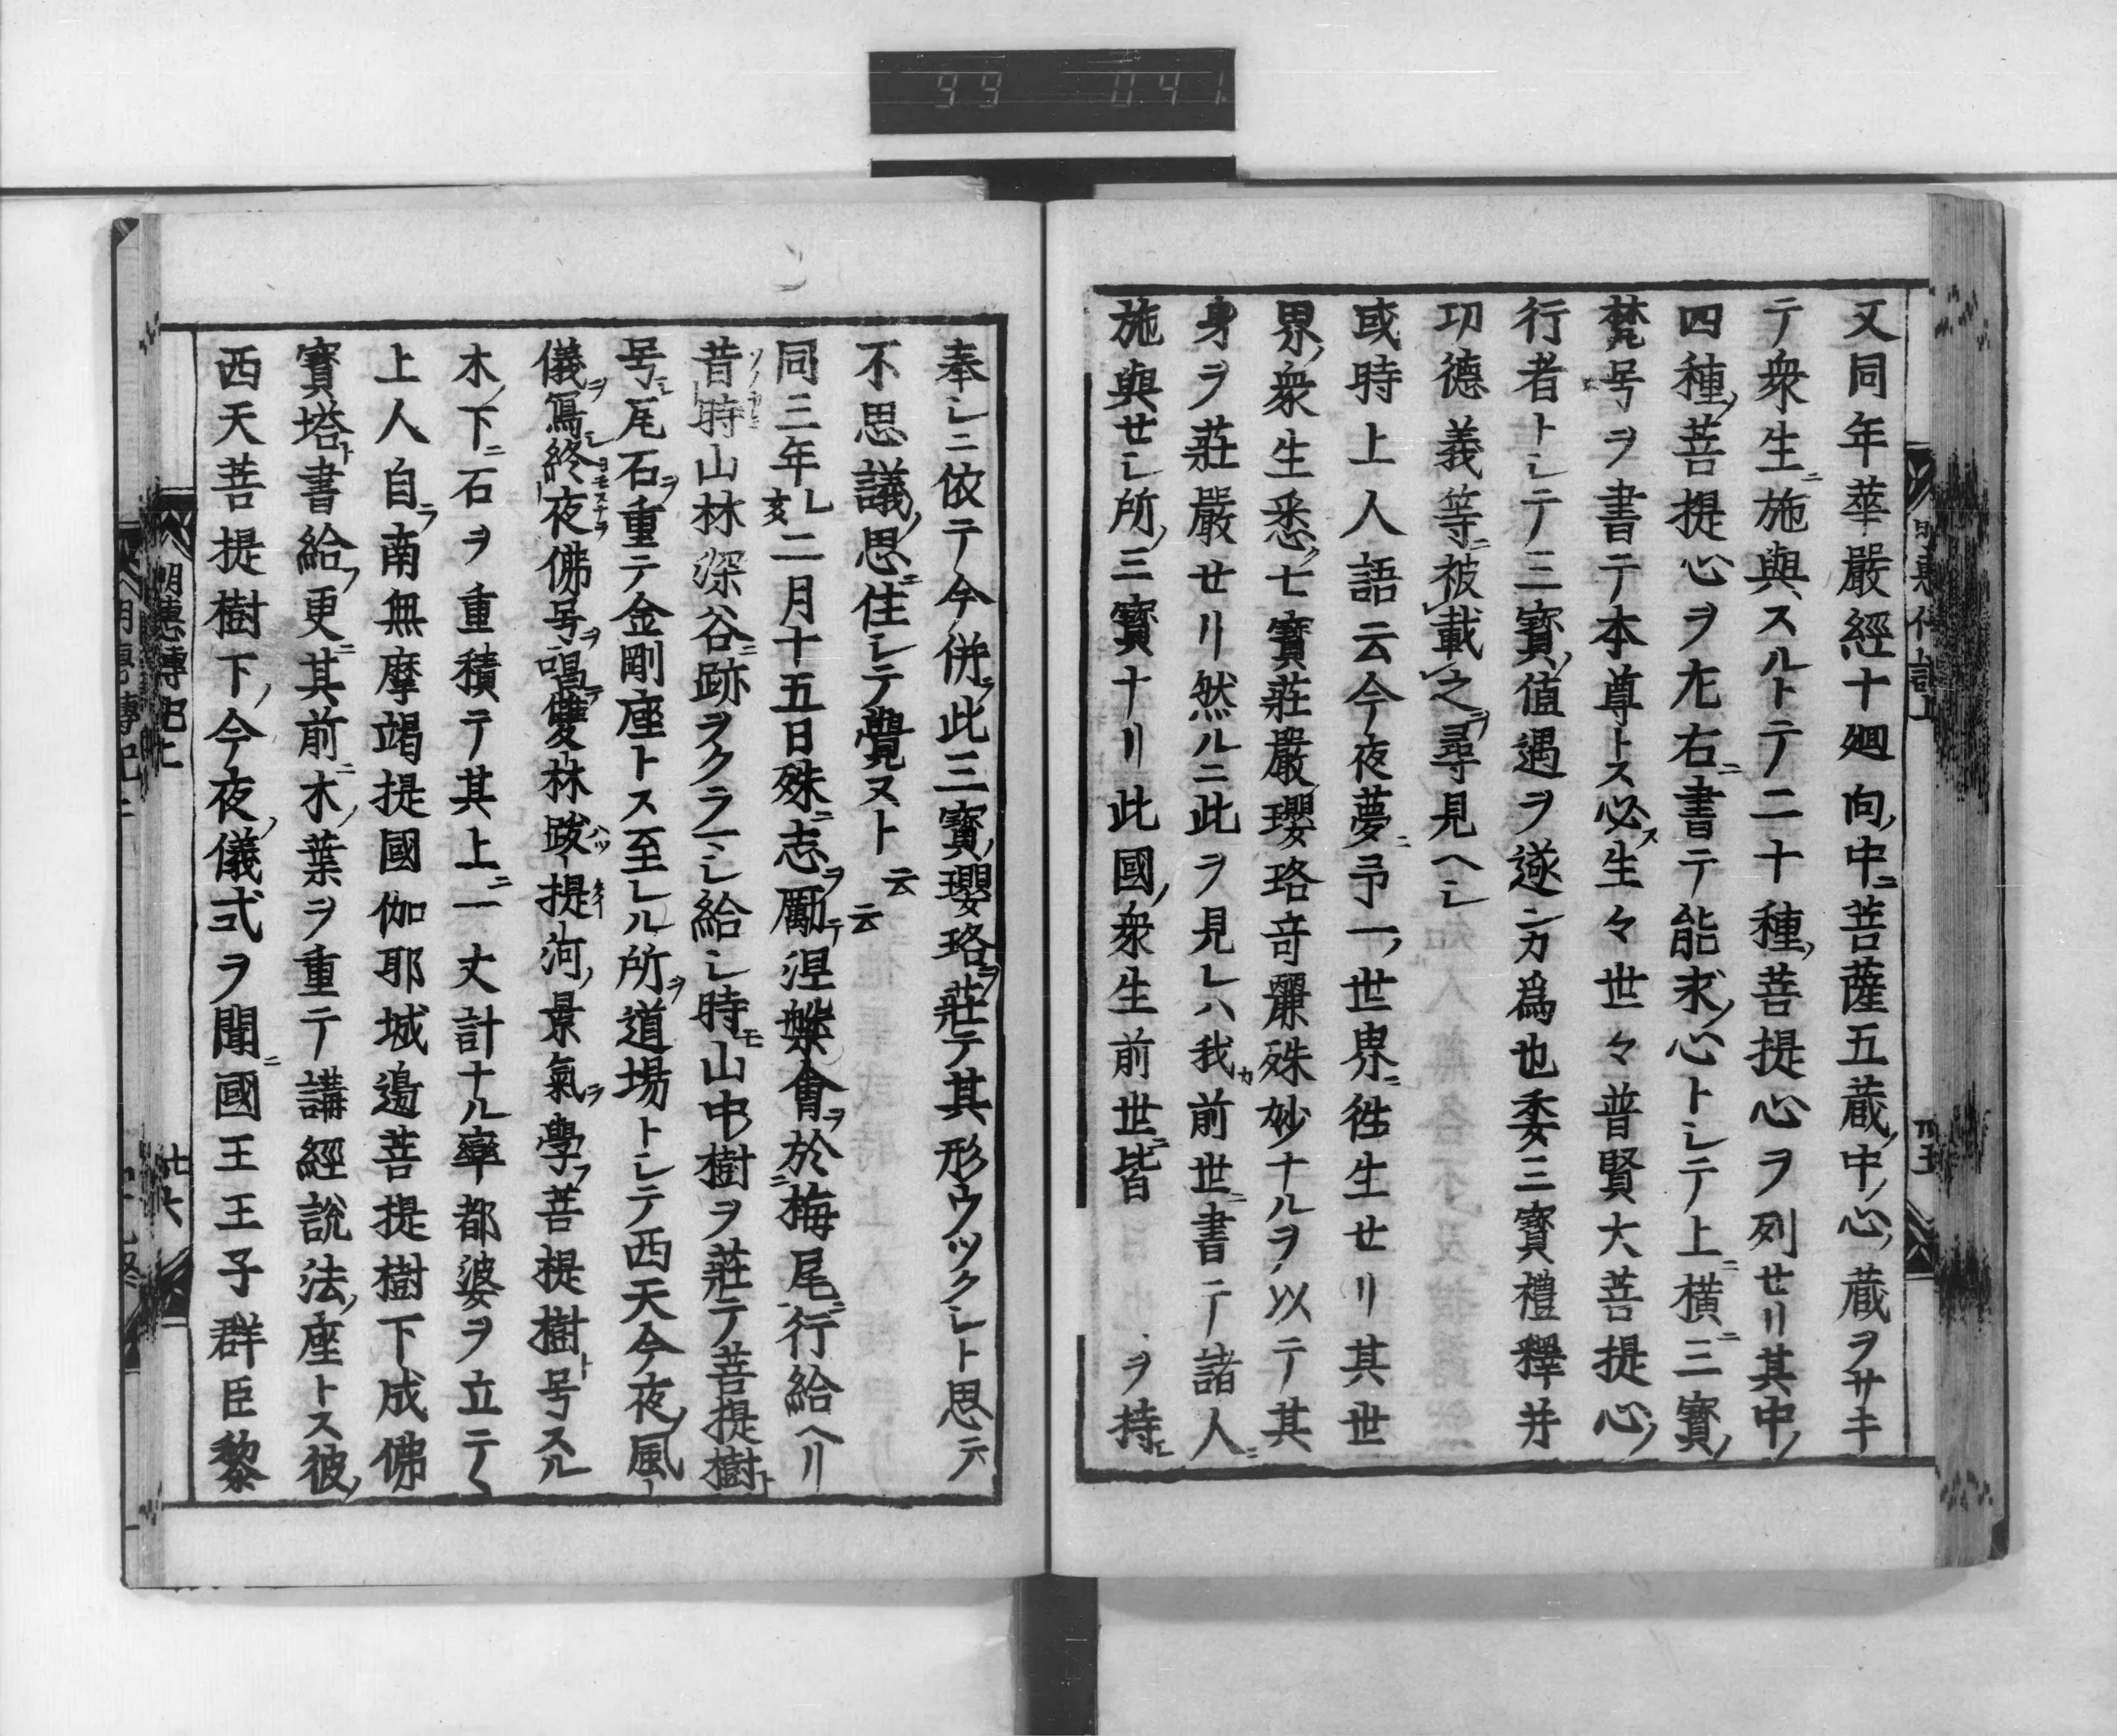 99 041
又同年華嚴經十廻向ノ中ニ菩薩五蔵ノ中ノ心ノ蔵ヲサキ
テ衆生ニ施與スルトテ二十種ノ菩提心ヲ列セリ其中ノ
四種ノ菩提心ヲ左右ニ書テ能求ノ心トシテ上ニ横ニ三寳ノ
梵号ヲ書テ本尊トス必ス生々世々普賢大菩提心ノ
行者トシテ三寳ノ値遇ヲ遂ンカ爲也委三寳禮釋并
功德義等ニ被載之ヲ尋見ヘシ
或時上人語云今夜夢ニ予一ノ世界ニ徃生セリ其世
界ノ衆生悉ク七寳莊嚴瓔珞奇麗殊妙ナルヲ以テ其
身ヲ莊嚴セリ然ルニ此ヲ見レハ我カ前世ニ書テ諸人ニ
施與セシ所ノ三寳ナリ此國ノ衆生前世ニ皆ヲ持シ
奉シニ依テ今併ラ此三寳ノ瓔珞ヲ莊テ其形ウツクシト思テ
不思議ノ思ニ住シテ覺ヌト云云
同三年乚亥二月十五日殊ニ志ヲ勵テ涅槃會ヲ於梅尾ニ行給ヘリ
昔時山林深谷ニ跡ヲクラ〻シ給シ時モ山中ノ樹ヲ莊テ菩提樹ト
号ニ尾石ヲ重テ金剛座トス至レル所ヲ道場トシテ西天今夜ノ風
儀ヲ寫シ終夜佛号ヲ唱テ雙林跋提河ノ景氣ヲ學フ菩提樹ト号スル
木ノ下ニ石ヲ重積テ其上ニ一丈計ナル率都婆ヲ立テ〱
上人自ラ南無摩竭提國伽耶城邉菩提樹下成佛
寳塔ト書給フ更ニ其前ニ木ノ葉ヲ重テ講經説法ノ座トス彼ノ
西天菩提樹下ノ今夜ノ儀式ヲ聞ニ國王王子群臣黎
明惠傳記上
廿六